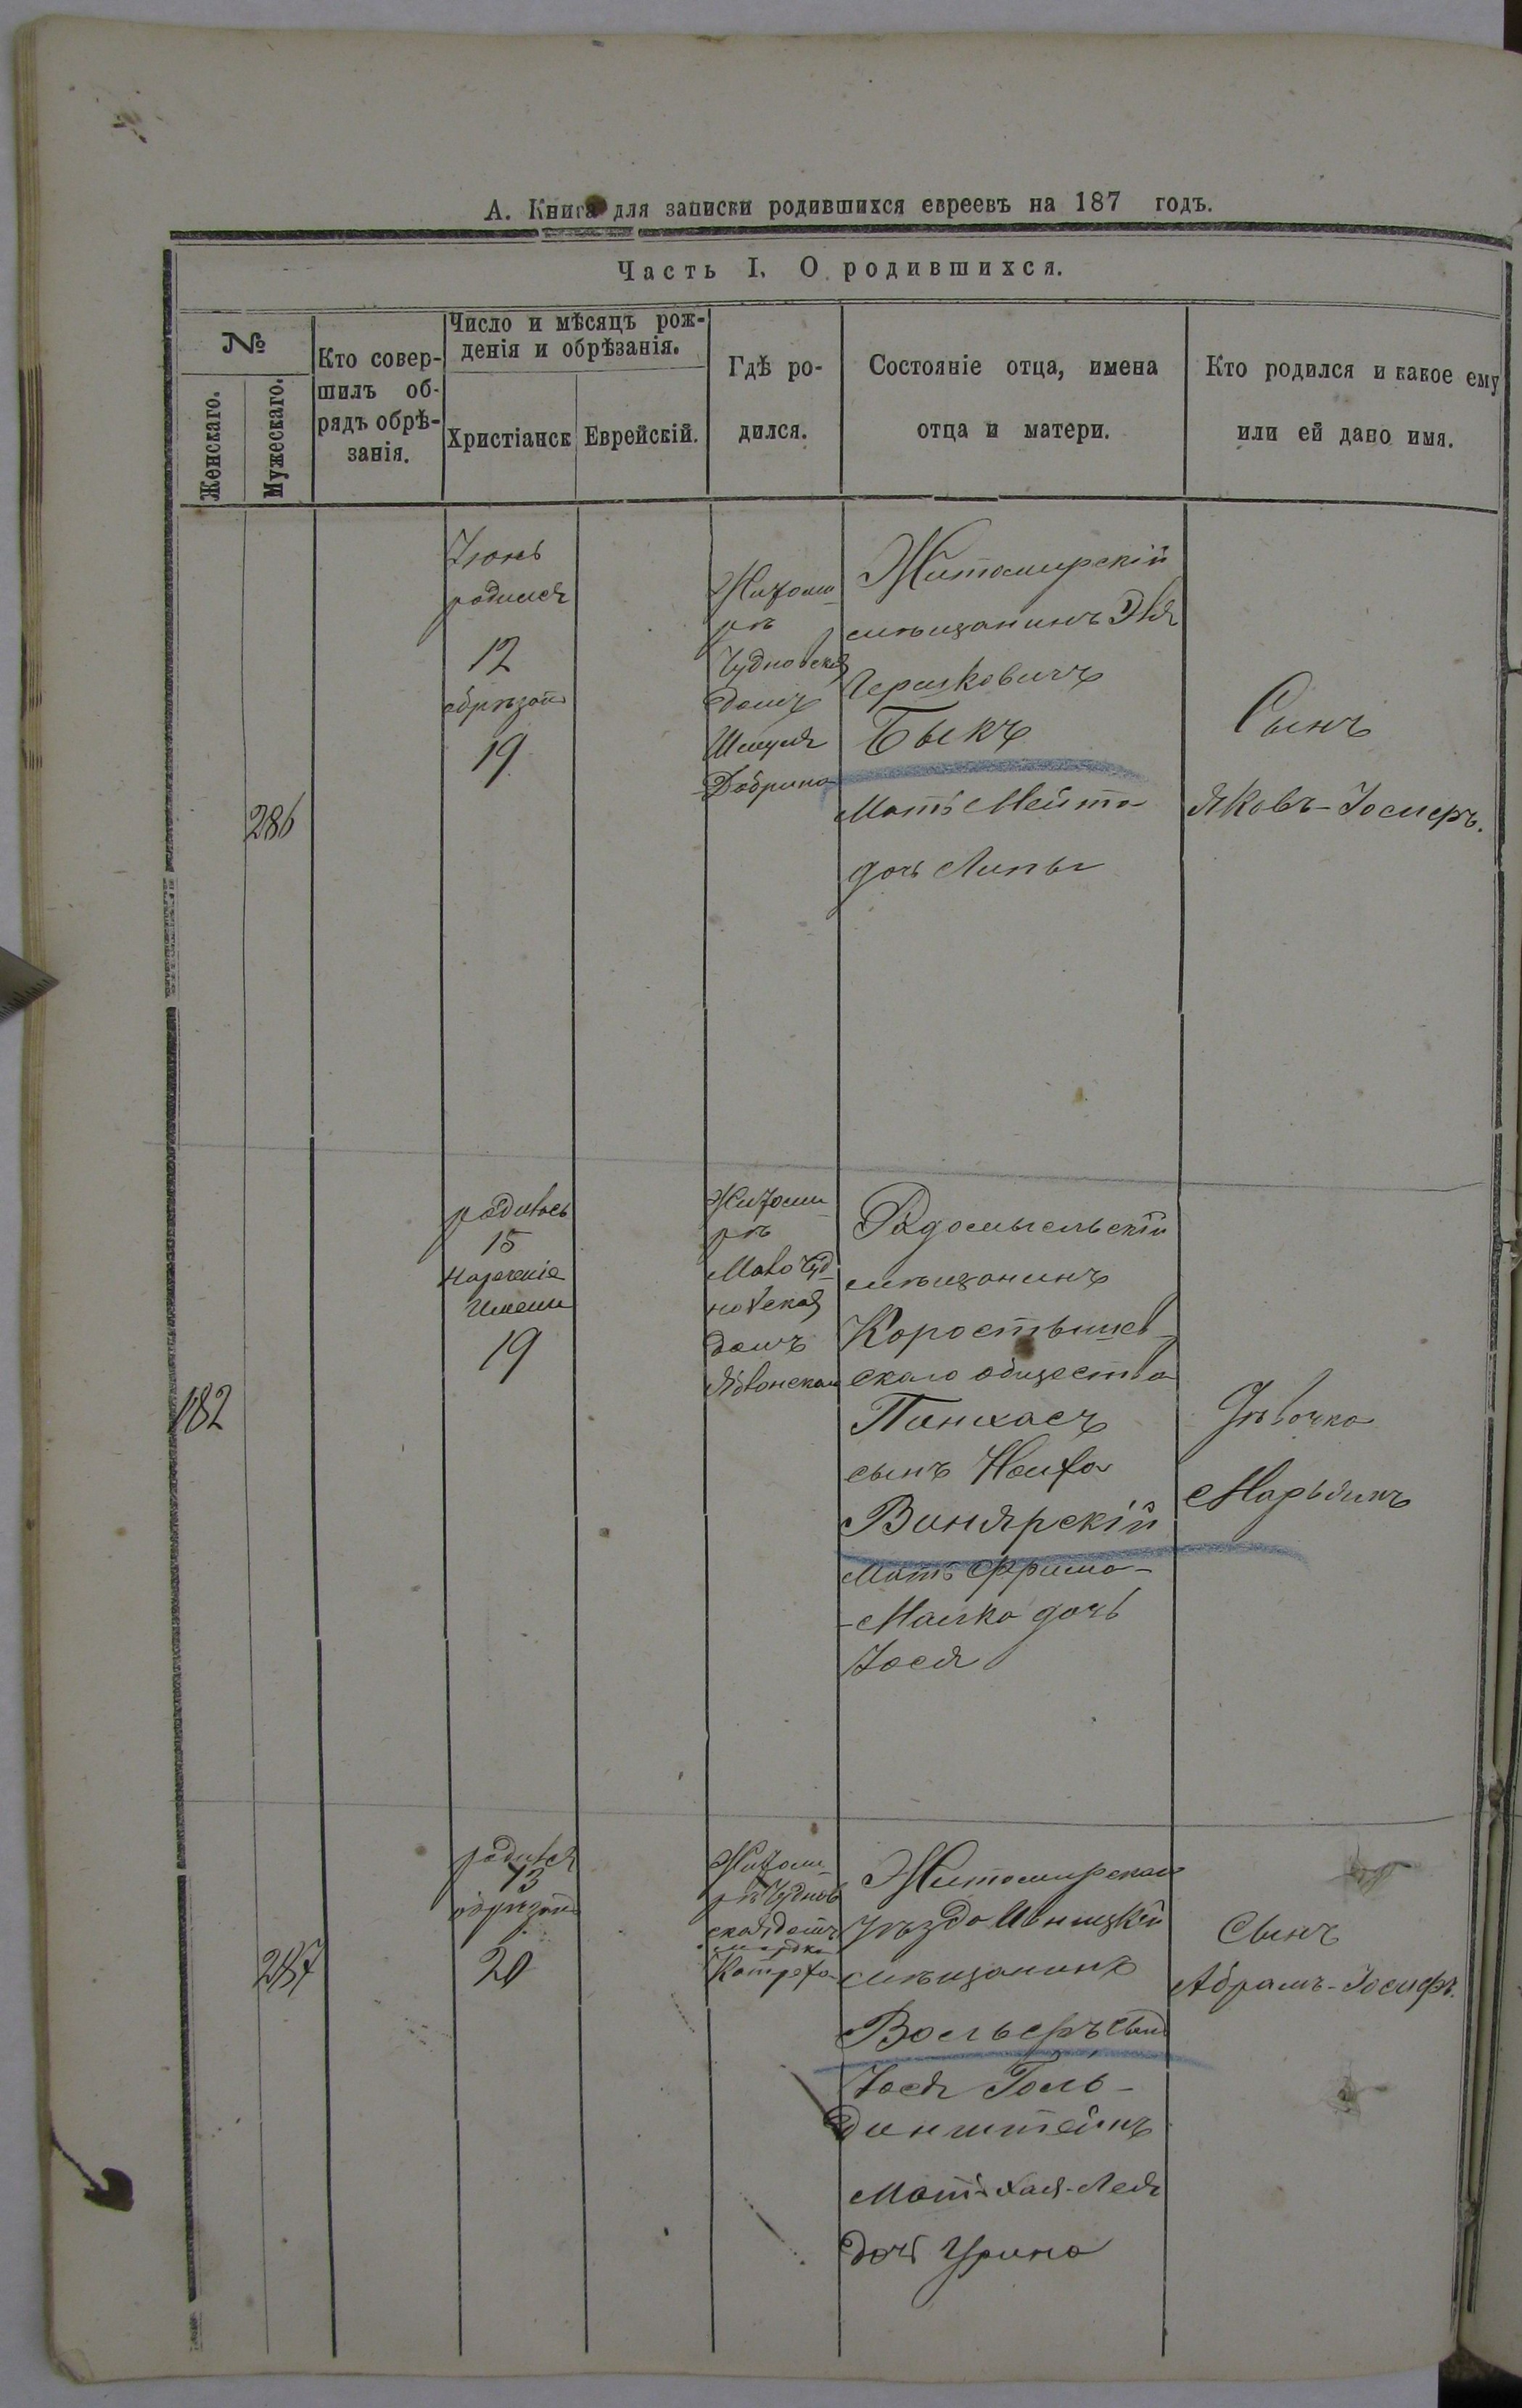 А. Книга для записки родившихся евреевъ на 187 годъ.
Часть I. О родившихся.
№
Женскаго.
Мужескаго.
Кто совер-
шилъ об-
рядъ обрѣ-
занія.
Число и мѣсяцъ рож-
денія и обрѣзанія.
Христіанск
Еврейскій.
Гдѣ ро-
дился.
Состояніе отца, имена
отца и матери.
Кто родился и какое ему
или ей дано имя.
286
Іюнь
родился
12
обрѣзанъ
19
Житоми-
рѣ
Чудновская
домъ
Шмуля
Добрина
Житомирскій
мѣщанинъ Эля
Гершковичъ
Быкъ
Мать Мейта
дочь Липы
Сынъ
Яковъ-Іосперъ.
182
родилась
15
Нареченіе
имени
19
Житоми-
рѣ
Мало Чуд-
новская
домъ
Радомысльскій
мѣщанинъ
Коростышев-
скаго общества
Пинхасъ
сынъ
Винярскій
Мать Фрима-
-Малка дочь
Іося
Дѣвочка
Марьямъ
287
родился
13
обрѣзанъ
20
Житоми-
рѣ Чуднов
ская домъ
Житомирскаго
уѣзда Ивницкій
мѣщанинъ
Вольфъ сынъ
Іося Голь-
динштейнъ
Мать Хая-Лея
дочь
Сынъ
Абрамъ-Іосифъ.